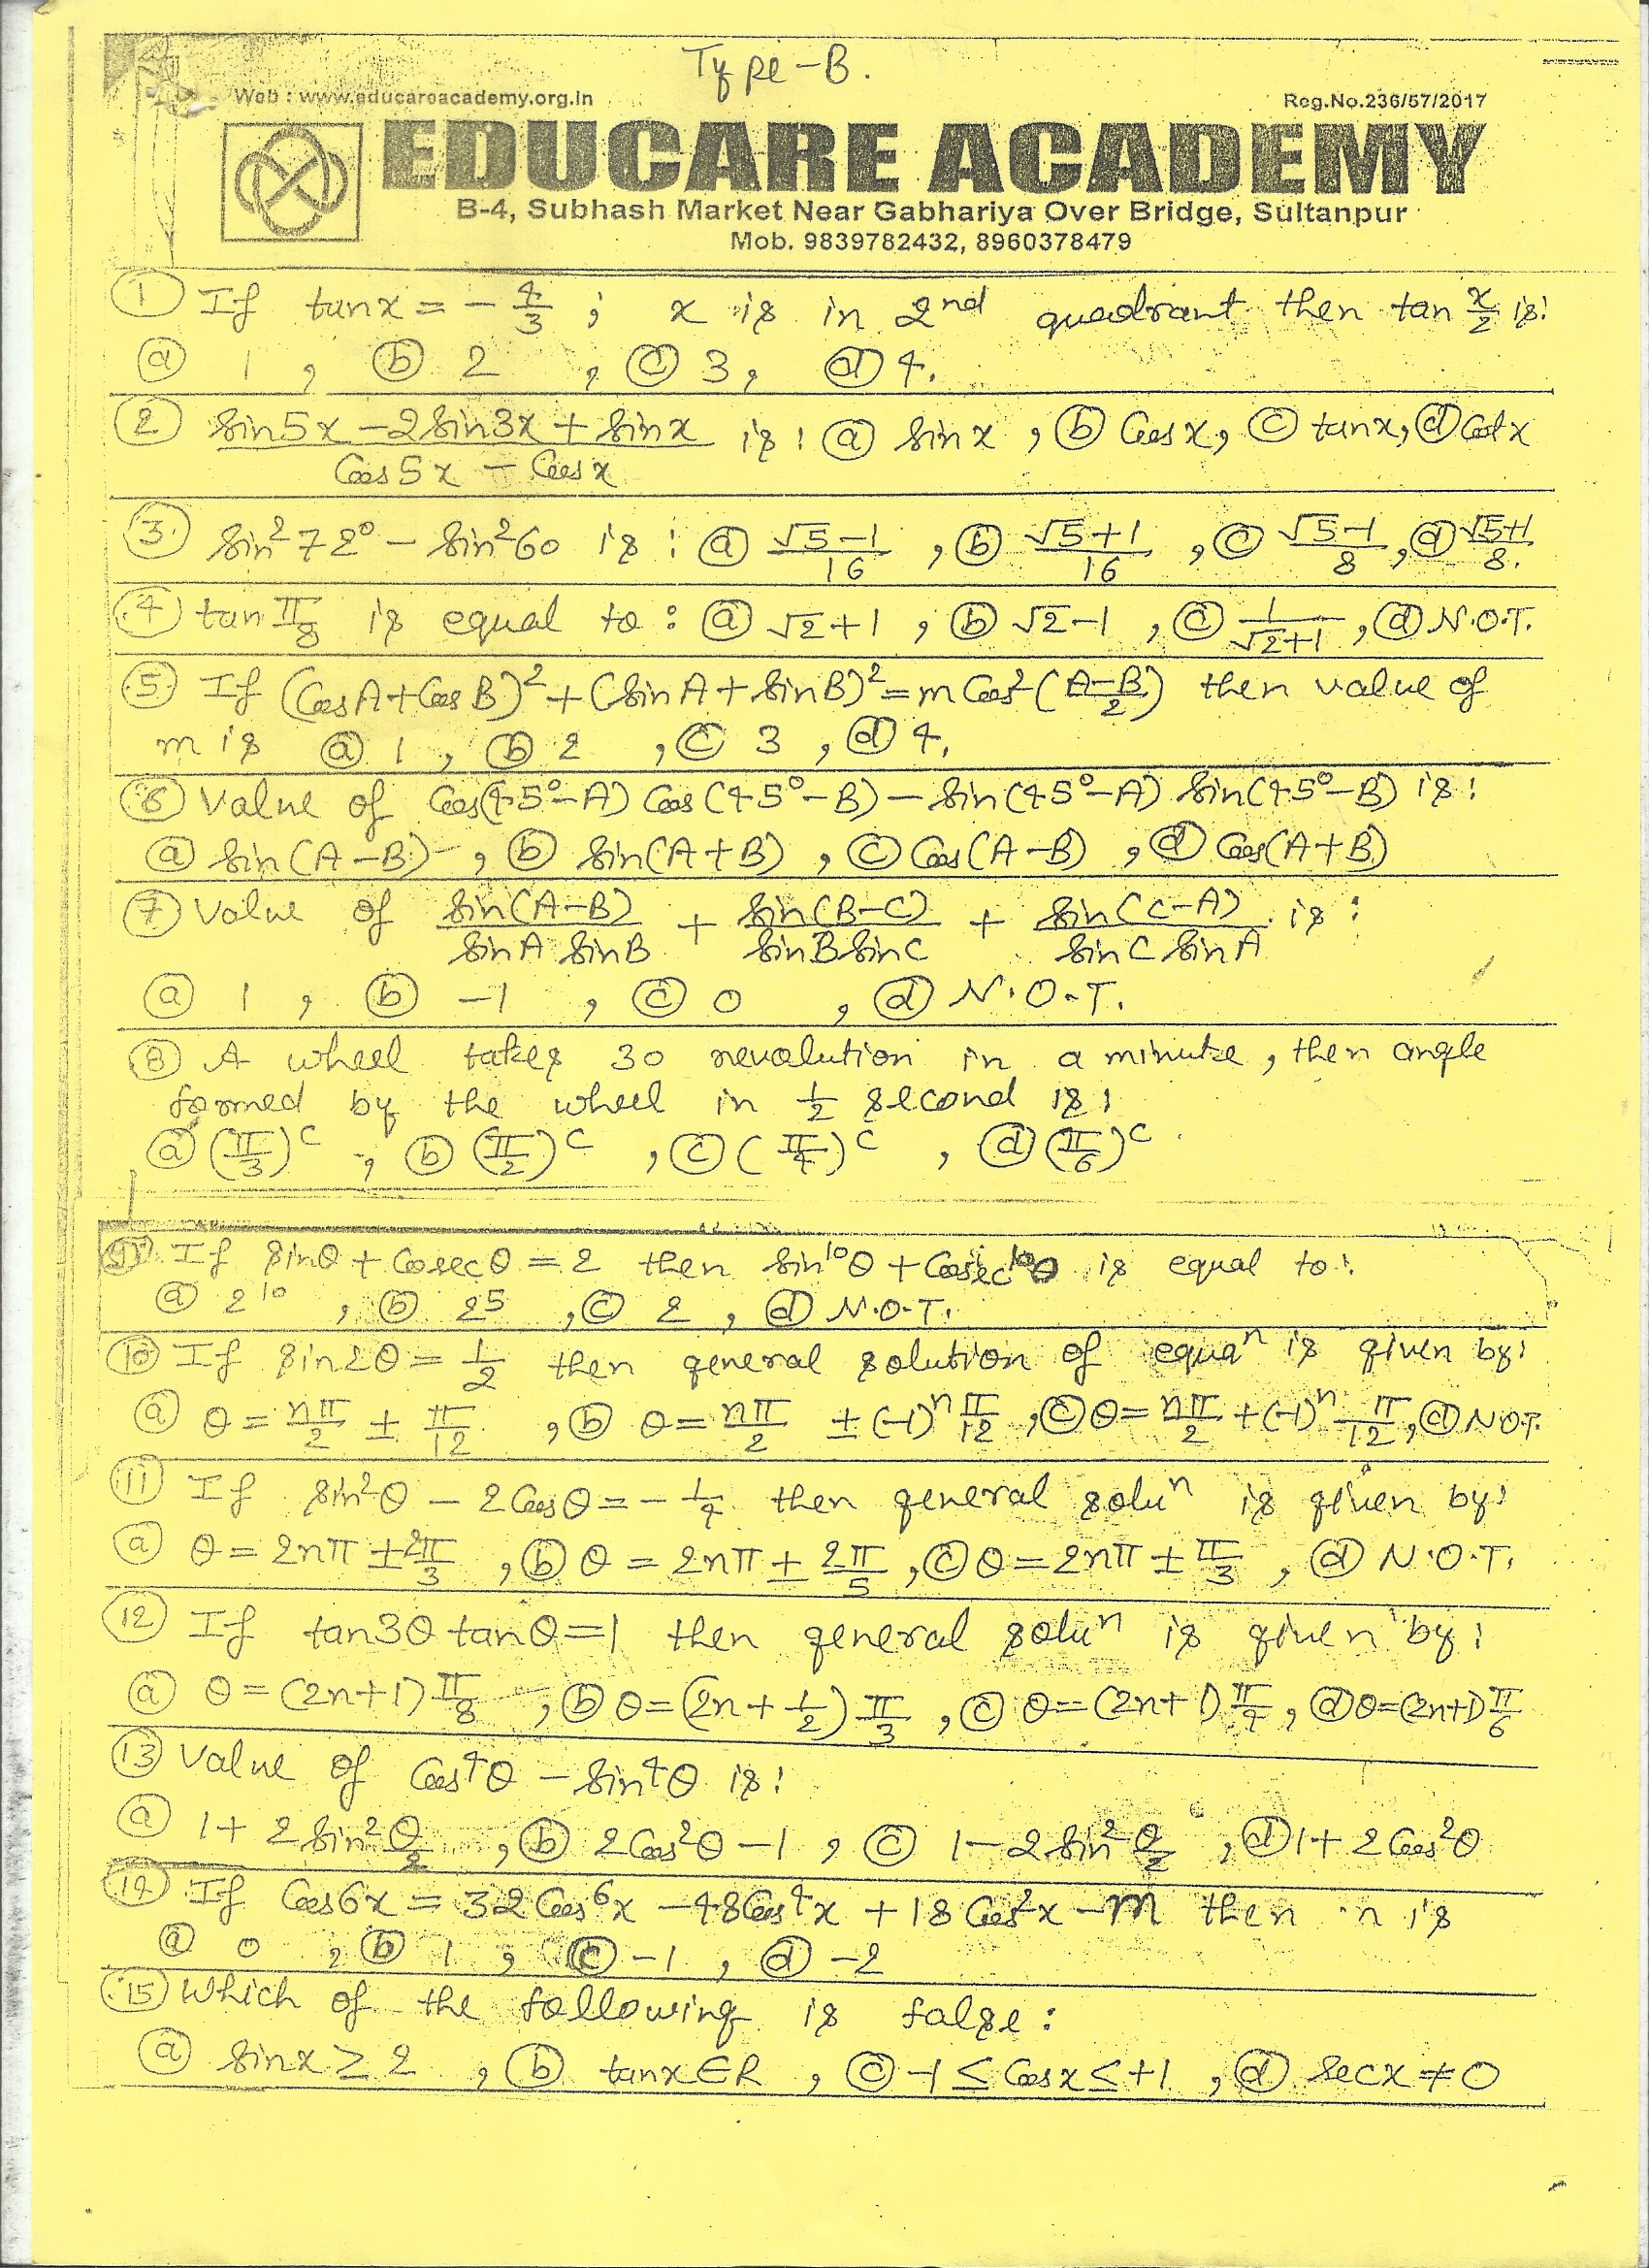 Type-B.
Web : www.educareacademy.org.in
Reg.No.236/57/2017
EDUCARE ACADEMY
B-4, Subhash Market Near Gabhariya Over Bridge, Sultanpur
Mob. 9839782432, 8960378479
① If tanx = -4/3 ; x is in 2nd quadrant then tan x/2 is:
ⓐ 1 , ⓑ 2 , ⓒ 3, ⓓ 4.
② (sin5x - 2sin3x + sinx)/(Cos5x - Cosx) is : ⓐ sinx , ⓑ Cosx, ⓒ tanx, ⓓ Cotx
③ sin²72° - sin²60 is : ⓐ (√5-1)/16 , ⓑ (√5+1)/16 , ⓒ (√5-1)/8 , ⓓ (√5+1)/8.
④ tan π/8 is equal to : ⓐ √2+1 , ⓑ √2-1 , ⓒ 1/(√2+1) , ⓓ N.O.T.
⑤ If (CosA+CosB)² + (sinA+sinB)² = m Cos²((A-B)/2) then value of
m is ⓐ 1 , ⓑ 2 , ⓒ 3 , ⓓ 4.
⑥ Value of Cos(45°-A) Cos(45°-B) - sin(45°-A) sin(45°-B) is :
ⓐ sin(A-B) , ⓑ sin(A+B) , ⓒ Cos(A-B) , ⓓ Cos(A+B)
⑦ Value of sin(A-B)/(sinA sinB) + sin(B-C)/(sinB sinC) + sin(C-A)/(sinC sinA) is :
ⓐ 1 , ⓑ -1 , ⓒ 0 , ⓓ N.O.T.
⑧ A wheel takes 30 revolution in a minute , then angle
formed by the wheel in 1/2 second is :
ⓐ (π/3)ᶜ , ⓑ (π/2)ᶜ , ⓒ (π/4)ᶜ , ⓓ (π/6)ᶜ
⑨ If sinθ + Cosecθ = 2 then sin¹⁰θ + Cosec¹⁰θ is equal to :
ⓐ 2¹⁰ , ⓑ 2⁵ , ⓒ 2 , ⓓ N.O.T.
⑩ If sin2θ = 1/2 then general solution of equaⁿ is given by :
ⓐ θ = nπ/2 ± π/12 , ⓑ θ = nπ/2 ± (-1)ⁿ π/12 , ⓒ θ = nπ/2 + (-1)ⁿ π/12 , ⓓ N.O.T.
⑪ If sin²θ - 2Cosθ = -1/4 then general soluⁿ is given by :
ⓐ θ = 2nπ ± 2π/3 , ⓑ θ = 2nπ ± 2π/5 , ⓒ θ = 2nπ ± π/3 , ⓓ N.O.T.
⑫ If tan3θ tanθ = 1 then general soluⁿ is given by :
ⓐ θ = (2n+1)π/8 , ⓑ θ = (2n + 1/2) π/3 , ⓒ θ = (2n+1) π/4 , ⓓ θ = (2n+1) π/6
⑬ Value of Cos⁴θ - sin⁴θ is :
ⓐ 1 + 2 sin² θ/2 , ⓑ 2Cos²θ - 1 , ⓒ 1 - 2 sin² θ/2 , ⓓ 1 + 2 Cos²θ
⑭ If Cos6x = 32Cos⁶x - 48Cos⁴x + 18Cos²x - m then is
ⓐ 0 , ⓑ 1 , ⓒ -1 , ⓓ -2
⑮ Which of the following is false :
ⓐ sinx ≥ 2 , ⓑ tanx ∈ R , ⓒ -1 ≤ Cosx ≤ +1 , ⓓ secx ≠ 0